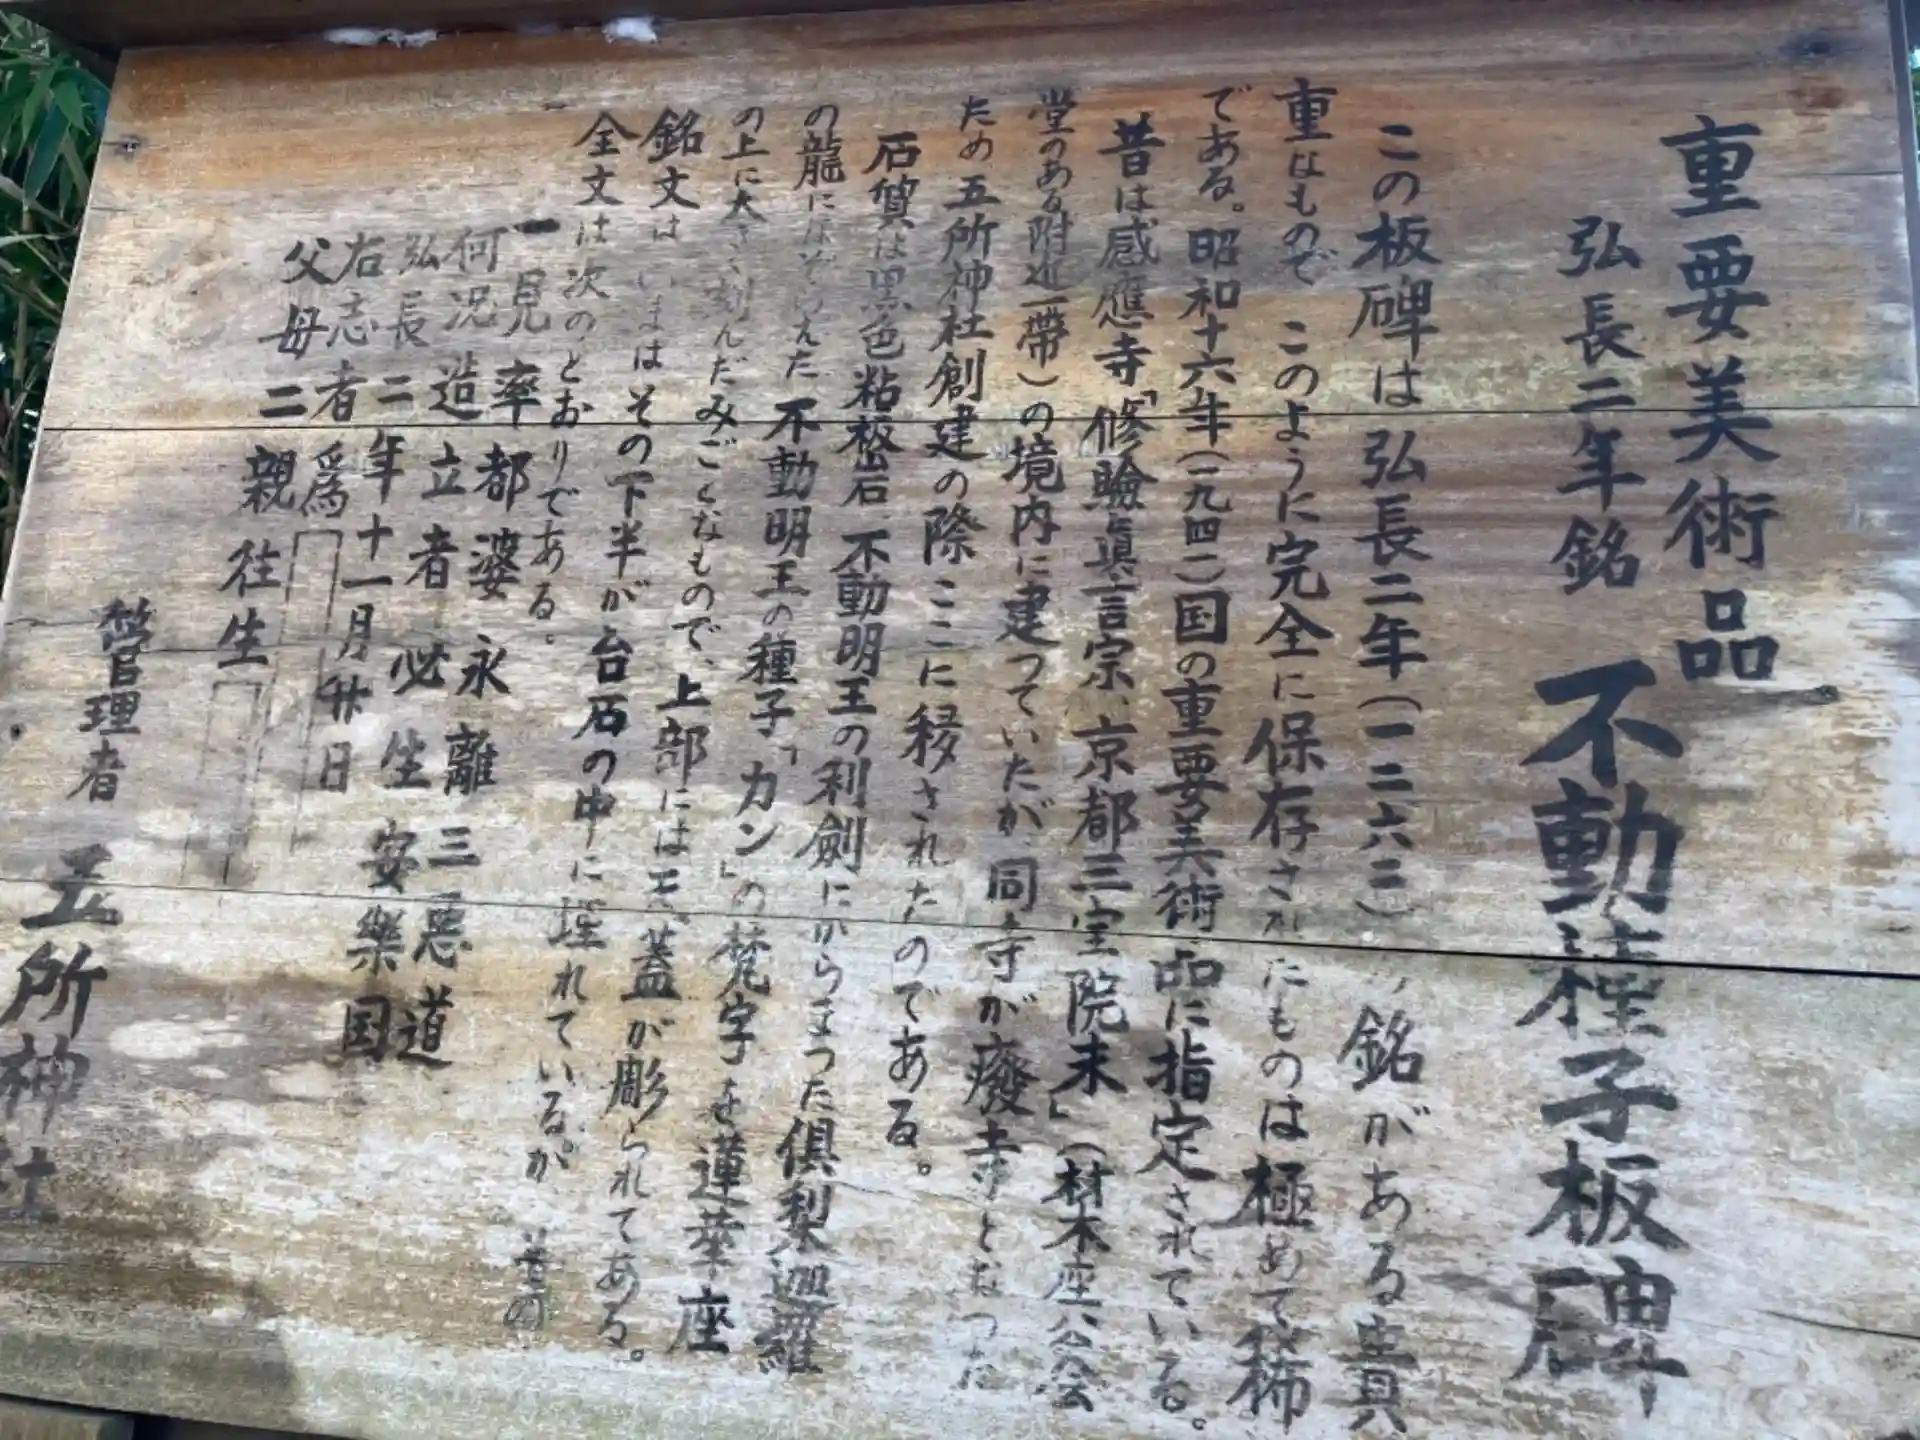 重要美術品
弘長二年銘 不動種子板碑
この板碑は弘長二年(一二六三)の銘がある貴
重なもので このように完全に保存されたものは極めて稀
である。昭和十六年(一九四一)国の重要美術品に指定されている。
昔は感應寺「修験眞言宗、京都三宝院末」(材木座公会
堂のある附近一帯)の境内に建っていたが、同寺が廢寺となった
ため五所神社創建の際ここに移されたのである。
石質は黒色粘板岩 不動明王の利劍にからまった倶梨迦羅
の龍になぞらえた不動明王の種子「カン」の梵字を蓮華座
の上に大きく刻んだみごとなもので、上部には天蓋が彫られてある。
銘文は いまはその下半が台石の中に埋れているが その
全文は次のとおりである。
一見率都婆 永離三悪道
何況造立者 必生安樂国
弘長二年十一月廿日
右志者爲
父母二親往生
管理者 五所神社